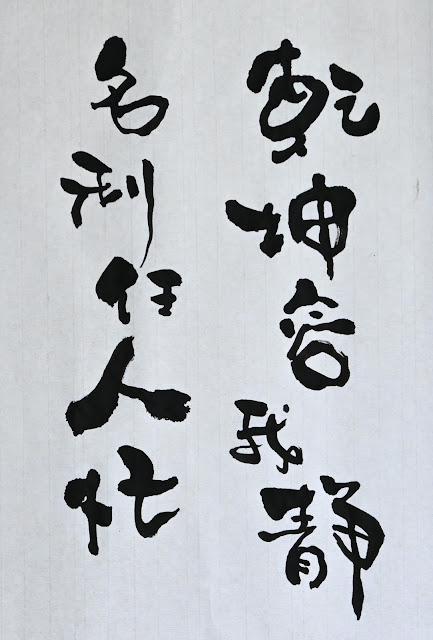 乾坤容我静
名利任人忙